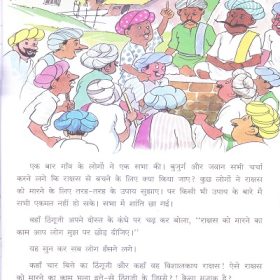 एक बार गाँव के लोगों ने एक सभा की। बुजुर्ग और जवान सभी चर्चा
करने लगे कि राक्षस से बचने के लिए क्या किया जाए? कुछ लोगों ने राक्षस
को मारने के लिए तरह-तरह के उपाय सुझाए। पर किसी भी उपाय के बारे में
सभी एकमत नहीं हो सके। सभा में शांति छा गई।
वहाँ ठिंगूजी अपने दोस्त के कंधे पर चढ़ कर बोला, "राक्षस को मारने का
काम आप लोग मुझ पर छोड़ दीजिए।"
यह सुन कर सब लोग हँसने लगे।
कहाँ चार बित्ते का ठिंगूजी और कहाँ वह विशालकाय राक्षस! ऐसे राक्षस
को मारने का काम भला इत्ते-से ठिंगूजी के जिम्मे? कैसा मजाक है?